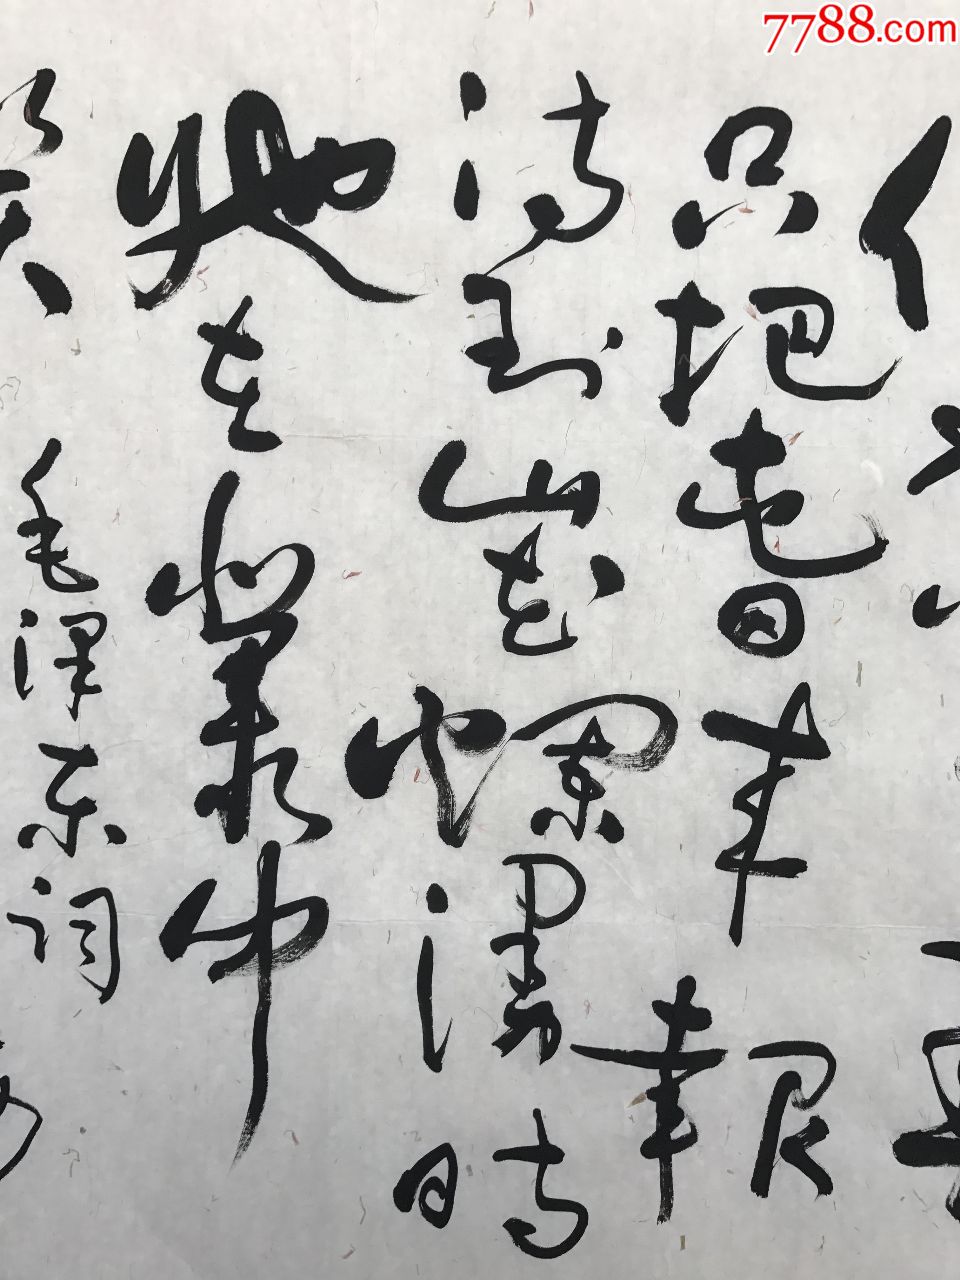 7788.com
俏
只把春来報
待到山花烂漫時
她在丛中
笑
毛泽东词